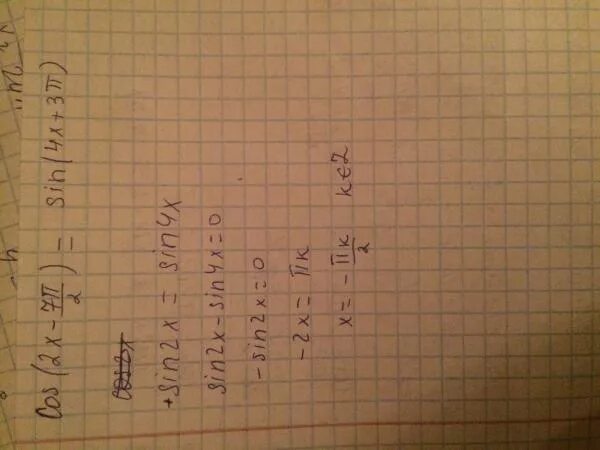 cos(2x - 7π/2) = sin(4x + 3π)
+sin2x = sin4x
sin2x - sin4x = 0
-sin2x = 0
-2x = πk
x = - πk/2 k∈Z